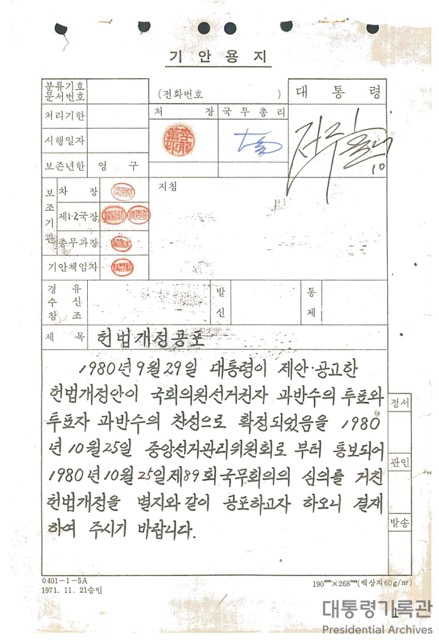 기안용지
분류기호
문서번호
(전화번호 )
대통령
처리기한
처 장
국무총리
시행일자
보존년한
영구
보조기관
차장
제1·2국장
총무과장
기안책임자
지침
경유
수신
참조
발신
통제
제목
헌법개정공포
1980년 9월 29일 대통령이 제안·공고한
헌법개정안이 국회의원선거권자 과반수의 투표와
투표자 과반수의 찬성으로 확정되었음을 1980
년 10월 25일 중앙선거관리위원회로 부터 통보되어
1980년 10월 25일 제89회 국무회의의 심의를 거친
헌법개정을 별지와 같이 공포하고자 하오니 결재
하여 주시기 바랍니다.
정서
관인
발송
0401-1-5A
1971. 11. 21승인
190mm×268mm(백상지60g/㎡)
대통령기록관
Presidential Archives